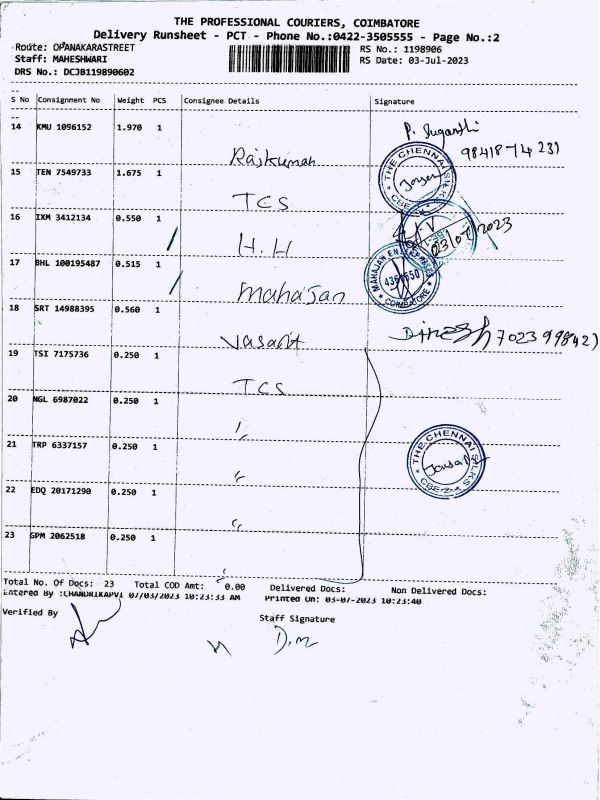 THE PROFESSIONAL COURIERS, COIMBATORE
Delivery Runsheet - PCT - Phone No.:0422-3505555 - Page No.:2
Route: OPANAKARASTREET
RS No.: 1198906
Staff: MAHESHWARI
RS Date: 03-Jul-2023
DRS No.: DCJB119890602
S No Consignment No Weight PCS Consignee Details Signature
14 KMU 1096152 1.970 1 Rajkumar P. Suganthi
98418 74 231
15 TEN 7549733 1.675 1 TCS THE CHENNAI SILKS CBE-2
16 IXM 3412134 0.550 1 H.H 03/07/2023
17 BHL 100195487 0.515 1 Mahajan MAHAJAN COIMBATORE
18 SRT 14988395 0.560 1 Vasant Dinesh
19 TSI 7175736 0.250 1 TCS
20 NGL 6987022 0.250 1 "
21 TRP 6337157 0.250 1 " THE CHENNAI SILKS CBE-2
22 EDQ 20171290 0.250 1 "
23 GPM 2062518 0.250 1 "
Total No. Of Docs: 23 Total COD Amt: 0.00 Delivered Docs: Non Delivered Docs:
Entered By :CHANDRIKAPVI 07/03/2023 10:23:33 AM Printed On: 03-07-2023 10:23:40
Verified By
Staff Signature